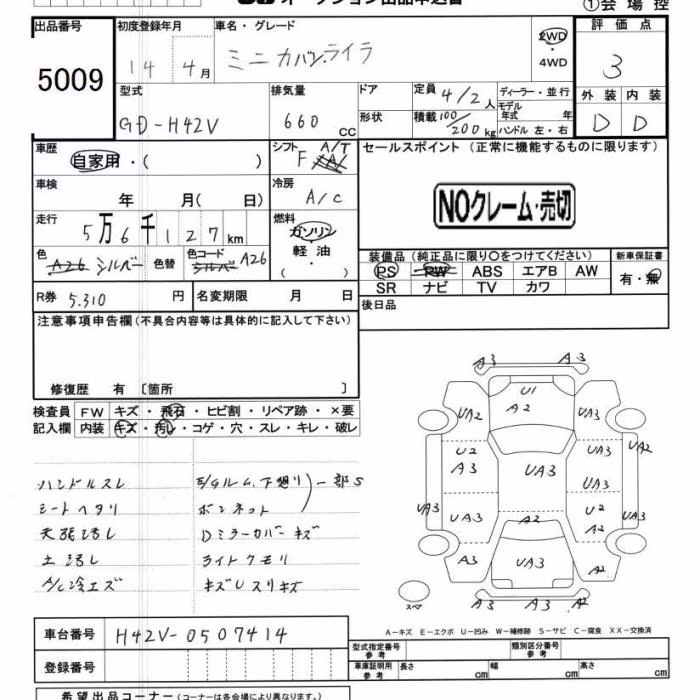 ①会場控
出品番号 初度登録年月 車名・グレード 評価点
5009 14年4月 ミニカバン.ライラ 2WD・4WD 3
型式 排気量 ドア 定員 4/2人 ディーラー・並行 外装 内装
GD-H42V 660cc 形状 積載 100/200kg モデル年式 年 ハンドル 左・右 D D
車歴 シフト A/T セールスポイント (正常に機能するものに限ります)
自家用・( ) F
車検 冷房
年 月( 日) A/C
NOクレーム・売切
走行 燃料
5万6千127km ガソリン・軽油・( )
色 A26 シルバー 色替 色コード シルバー A26
装備品(純正品に限り○をつけてください) 新車保証書
PS PW ABS エアB AW 有・無
SR ナビ TV カワ
R券 5.310 円 名変期限 月 日 後日品
注意事項申告欄(不具合内容等は具体的に記入して下さい)
修復歴 有 〔箇所 〕
検査員 FW キズ・飛石・ヒビ割・リペア跡・×要
記入欄 内装 キズ・汚レ・コゲ・穴・スレ・キレ・破レ
ハンドルスレ E/Gルム.下廻り 一部S
シートヘタリ ボンネット
天張汚レ Dミラーカバーキズ
土汚レ ライトクモリ
A/C冷エズ キズUスリキズ
A3 A3
U1
UA2 A2 UA3
U2 A3 UA3 UA3 UA2
UA3 UA3 A2 U2 A2 UA3
A3 UA3 A2
スペア A3 A3 A2
A-キズ E-エクボ U-凹み W-補修跡 S-サビ C-腐食 XX-交換済
車台番号 H42V-0507414
型式指定番号 参考 類別区分番号 参考
登録番号
車庫証明用 参考 長さ cm 幅 cm 高さ cm
希望出品コーナー(コーナーは各会場により異なります。)